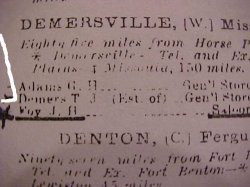 DEMERSVILLE, [W.] Mis
Eighty five miles from Horse P
* Demersville- Tel. and Ex.
Plains- ‡ Missoula, 150 miles.
Adams G. H. Gen'l Store
Demers T. J. (Est. of) Gen'l Store
Foy J. H Saloon
DENTON, [C.] Fergu
Ninety seven miles from Fort
Tel. and Ex. Fort Benton- *
Lewiston 45 miles